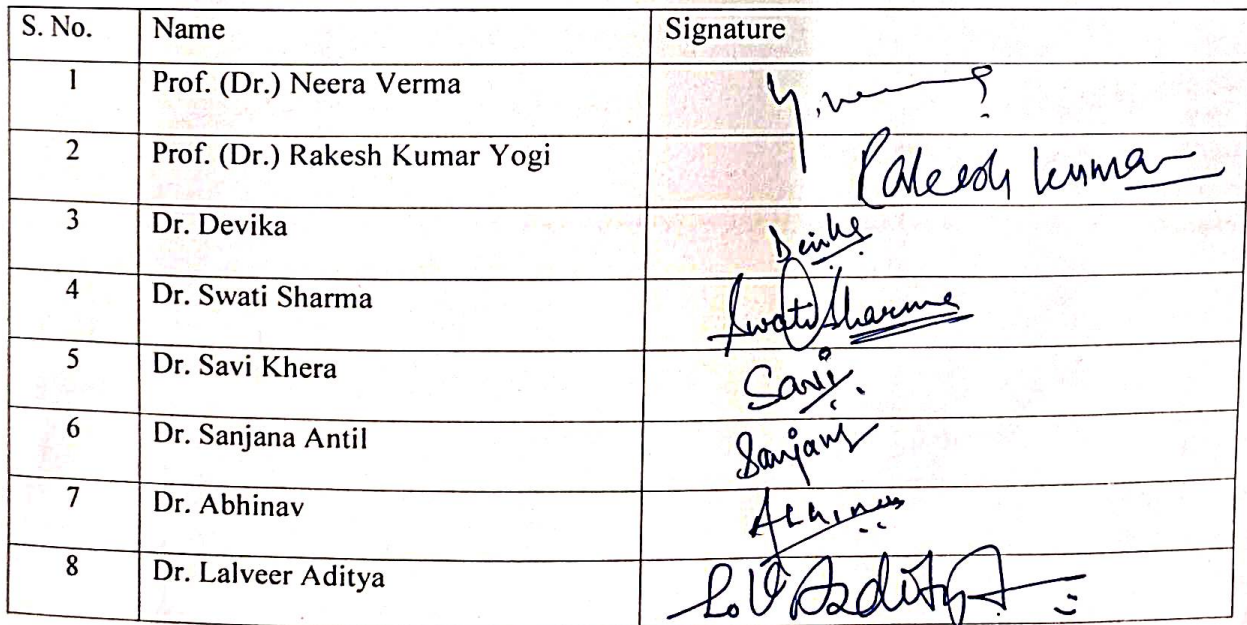 S. No. Name Signature
1 Prof. (Dr.) Neera Verma
2 Prof. (Dr.) Rakesh Kumar Yogi Rakesh Kumar
3 Dr. Devika Devika
4 Dr. Swati Sharma Swati Sharma
5 Dr. Savi Khera Savi
6 Dr. Sanjana Antil Sanjana
7 Dr. Abhinav Abhinav
8 Dr. Lalveer Aditya L.V Aaditya